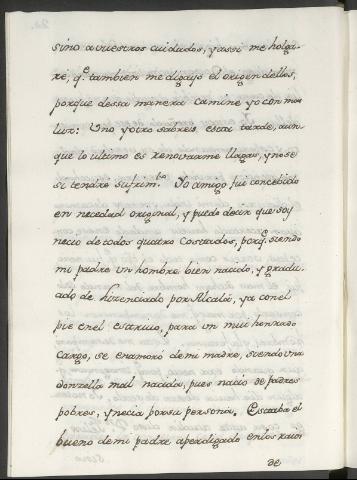 sino a vuestros cuidados, y assi me holga-
ré, q.e tambien me digays el origen dellos,
porque dessa manera camine yo con mas
luz: Uno y otro sabreis esta tarde, aun-
que lo ultimo es renovarme llagas, y no se
si tendre sufrim.to Yo amigo fui concebido
en necedad original, y puedo decir que soy
necio de todos quatro Costados, porq.e siendo
mi padre un hombre bien nacido, y gradu-
ado de Licenciado por Alcalá, ya con el
pie en el estarivo, para un mui honrrado
cargo, se enamoró de mi madre, siendo una
donzella mal nacida, pues nacio de padres
pobres, y necia por su persona. Estaba el
bueno de mi padre aperdigado en los raios
de